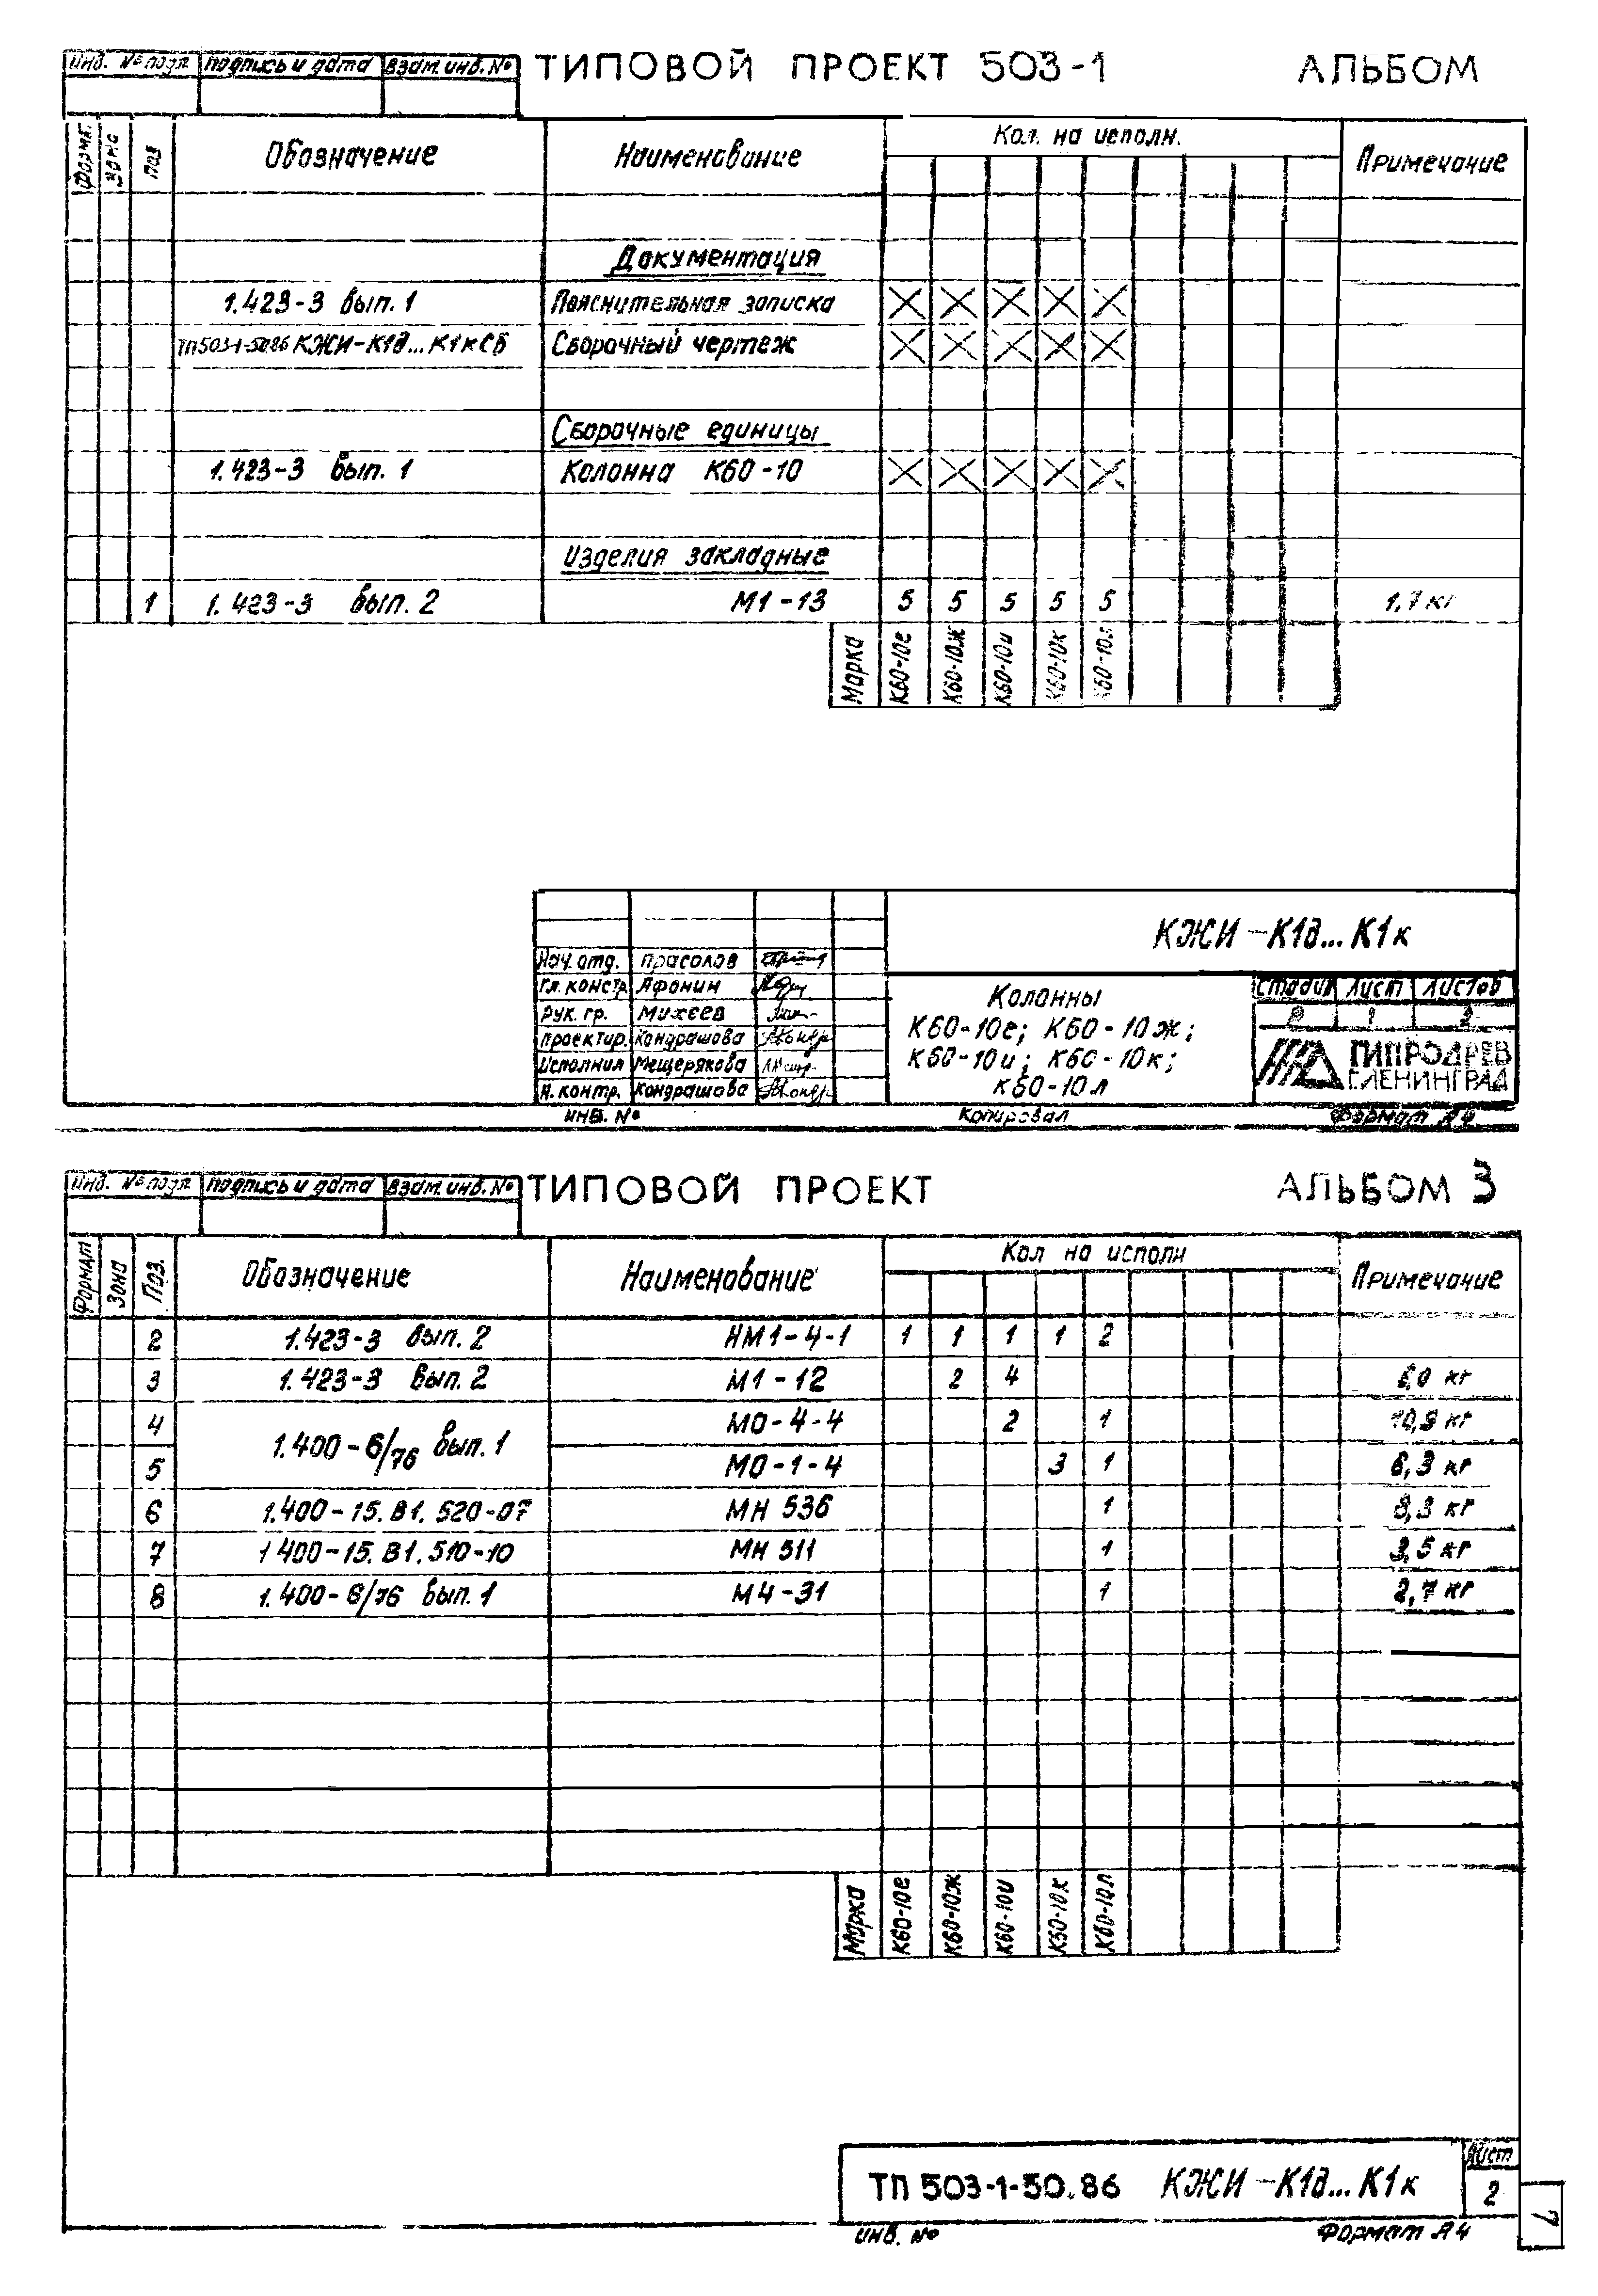 Инв. № подл. Подпись и дата Взам. инв. № ТИПОВОЙ ПРОЕКТ 503-1 АЛЬБОМ
Формат Зона Поз Обозначение Наименование Кол. на исполн. Примечание
Документация
1.423-3 Вып. 1 Пояснительная записка
ТП503-1-50.86 КЖИ-К1д...К1кСБ Сборочный чертеж
Сборочные единицы
1.423-3 Вып. 1 Колонна К60-10
Изделия закладные
1 1.423-3 Вып. 2 М1-13 5 5 5 5 5 1,7 кг
Марка К60-10е К60-10ж К60-10и К60-10к К60-10л
КЖИ-К1д...К1к
Нач. отд. Прасолов
Гл. констр. Афонин
Рук. гр. Михеев
Проектир. Кондрашова
Исполнил Мещерякова
Н. контр. Кондрашова
Колонны
К60-10е; К60-10ж;
К60-10и; К60-10к;
К60-10л
Стадия Лист Листов
Р 1 2
ГИПРОДРЕВ
Г.ЛЕНИНГРАД
ИНВ. № Копировал Формат А4
Инв. № подл. Подпись и дата Взам. инв. № ТИПОВОЙ ПРОЕКТ АЛЬБОМ 3
Формат Зона Поз. Обозначение Наименование Кол на исполн Примечание
2 1.423-3 Вып. 2 НМ1-4-1 1 1 1 1 2
3 1.423-3 Вып. 2 М1-12 2 4 кг
4 1.400-6/76 Вып. 1 МО-4-4 2 1 10,9 кг
5 МО-1-4 3 1 6,3 кг
6 1.400-15.В1.520-07 МН 536 1 8,3 кг
7 1 400-15.В1.510-10 МН 511 1 3,5 кг
8 1.400-6/76 Вып. 1 М4-31 1 2,7 кг
Марка К60-10е К60-10ж К60-10и К60-10к К60-10л
ТП 503-1-50.86 КЖИ-К1д...К1к
Лист
2
ИНВ. № Формат А4
7